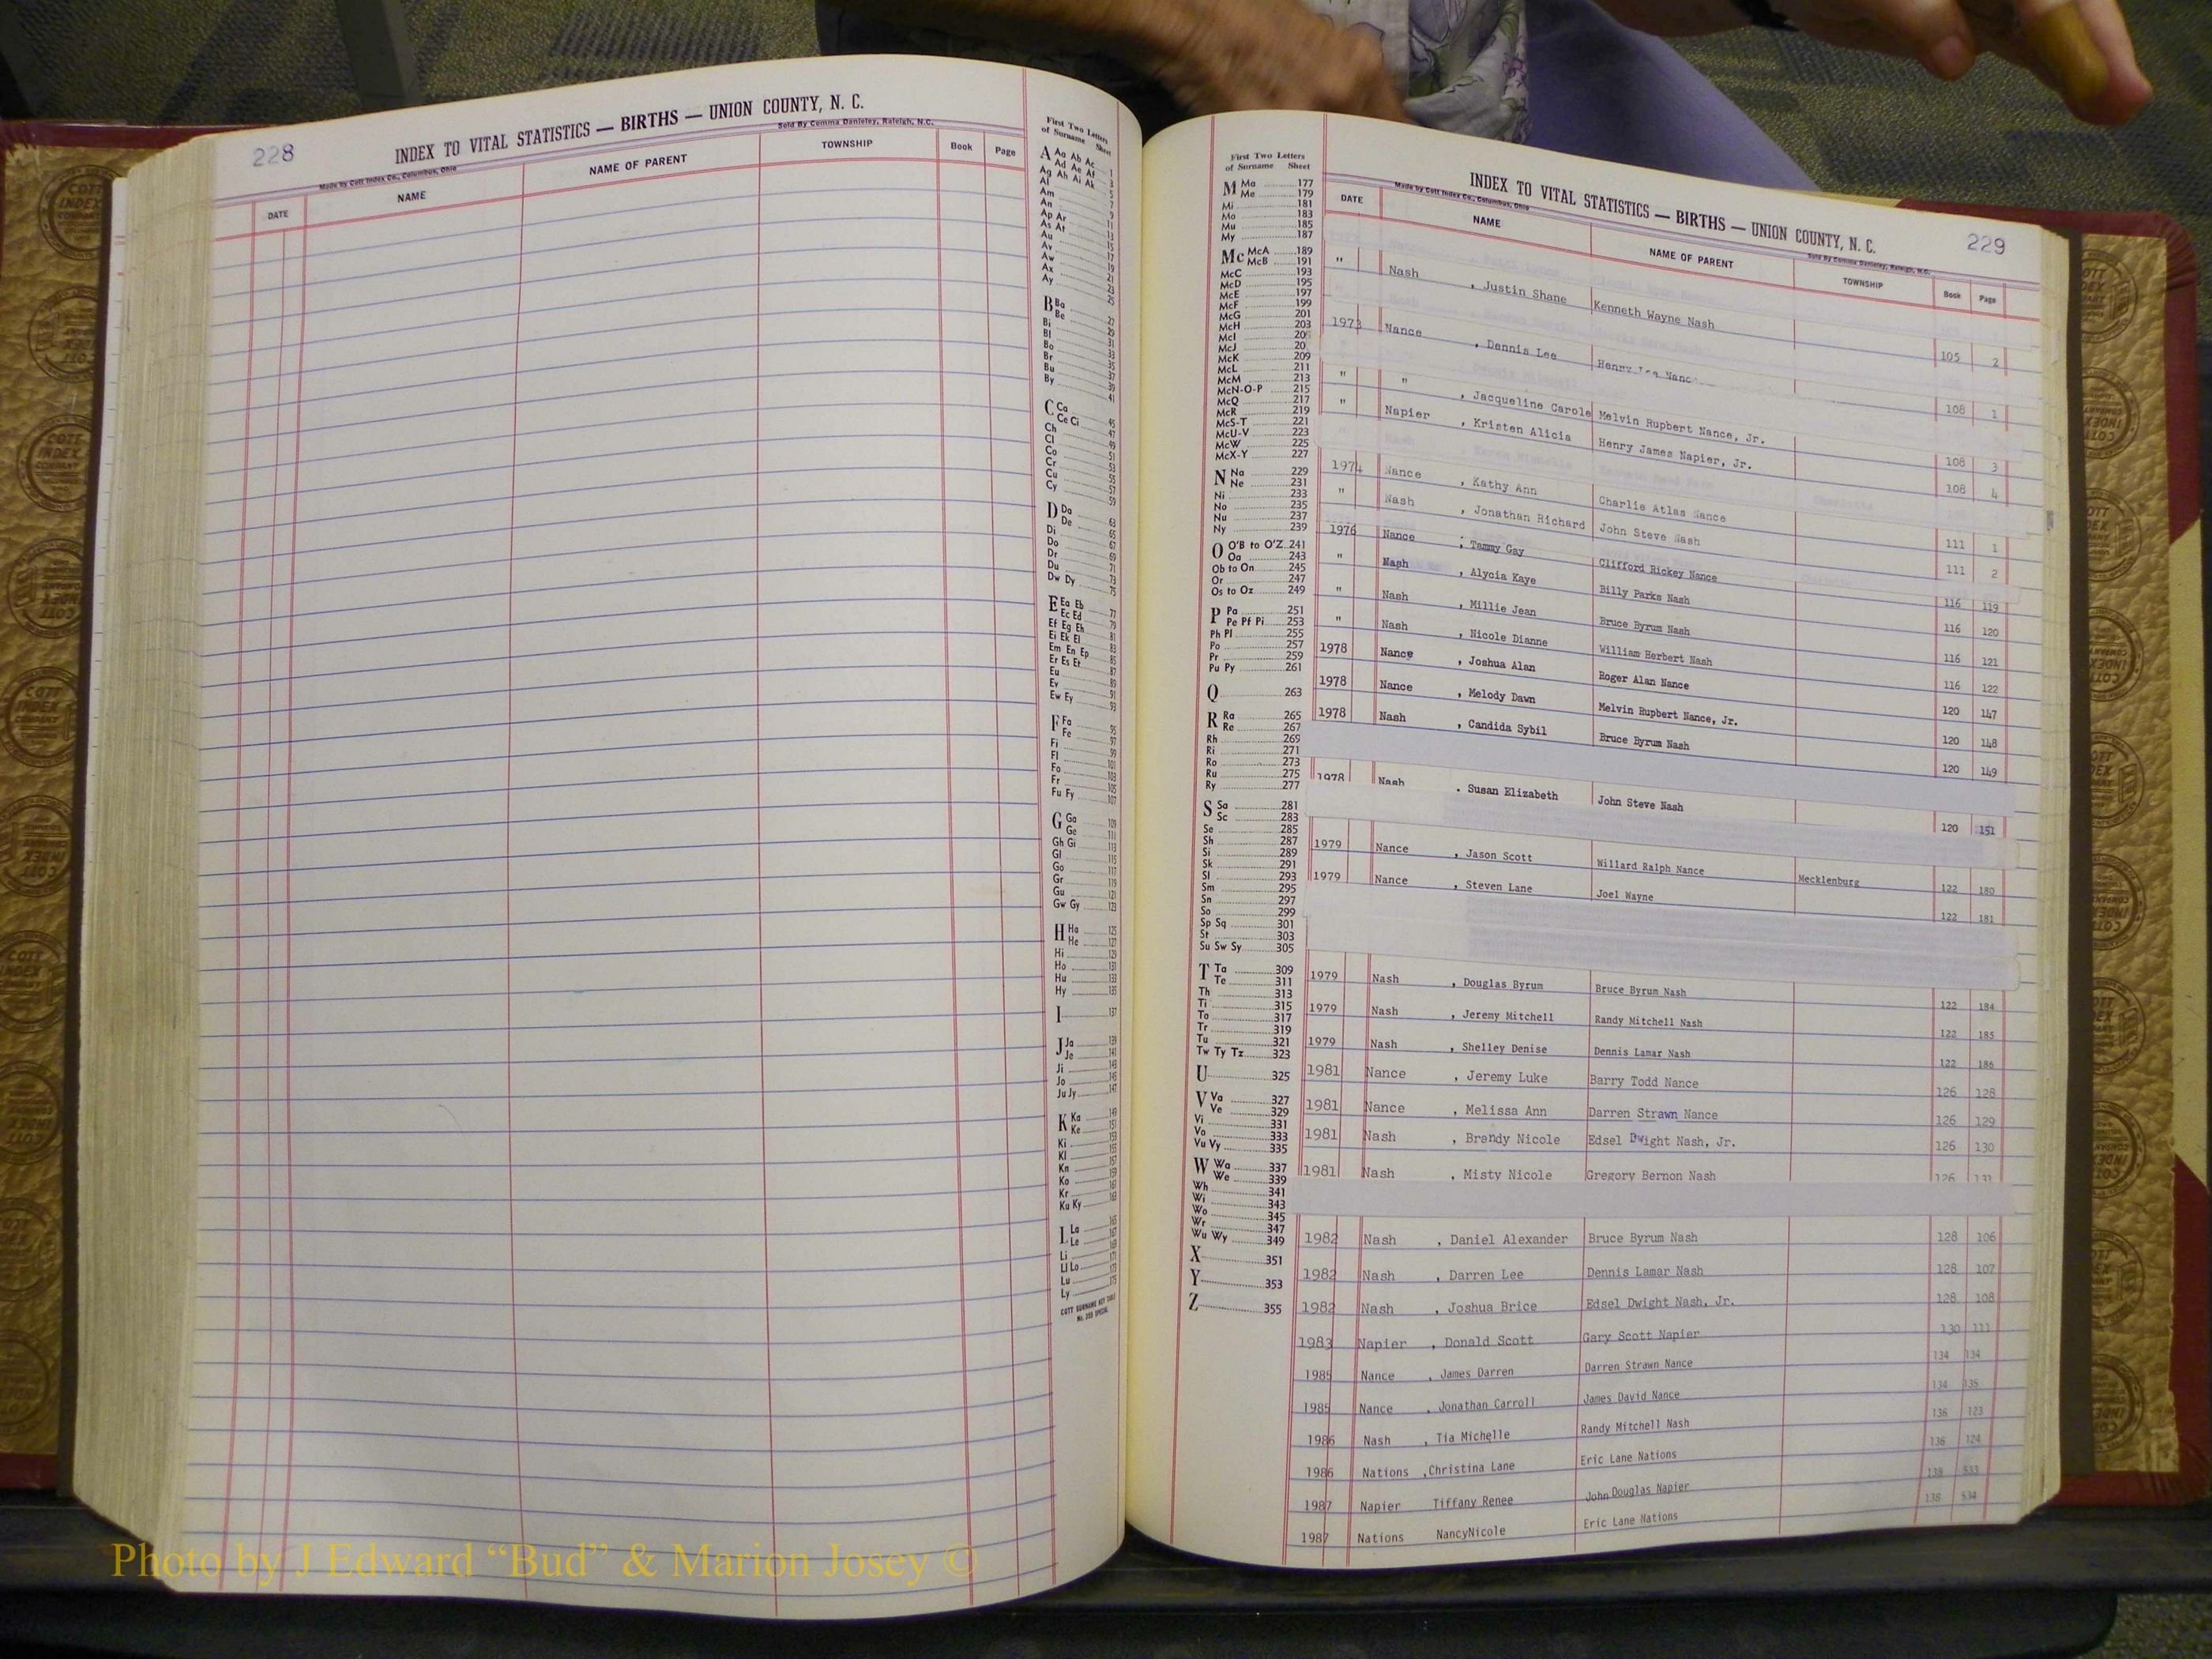 228
INDEX TO VITAL STATISTICS — BIRTHS — UNION COUNTY, N. C.
Made by Cott Index Co., Columbus, Ohio
Sold By Comma Danieley, Raleigh, N.C.
DATE NAME NAME OF PARENT TOWNSHIP Book Page
First Two Letters
of Surname Sheet
A Aa Ab Ac 1
Ad Ae Af 3
Ag Ah Ai Ak 5
Al 7
Am 9
An 11
Ap Ar 13
As At 15
Au 17
Av 19
Aw 21
Ax 23
Ay 25
B Ba 27
Be 29
Bi 31
Bl 33
Bo 35
Br 37
Bu 39
By 41
C Ca 45
Ce Ci 47
Ch 49
Cl 51
Co 53
Cr 55
Cu 57
Cy 59
D Da 63
De 65
Di 67
Do 69
Dr 71
Du 73
Dw Dy 75
E Ea Eb 77
Ec Ed 79
Ef Eg Eh 81
Ei Ek El 83
Em En Ep 85
Er Es Et 87
Eu 89
Ev 91
Ew Ey 93
F Fa 95
Fe 97
Fi 99
Fl 101
Fo 103
Fr 105
Fu Fy 107
G Ga 109
Ge 111
Gh Gi 113
Gl 115
Go 117
Gr 119
Gu 121
Gw Gy 123
H Ha 125
He 127
Hi 129
Ho 131
Hu 133
Hy 135
I 137
J Ja 139
Je 141
Ji 143
Jo 145
Ju Jy 147
K Ka 149
Ke 151
Ki 153
Kl 155
Kn 157
Ko 159
Kr 161
Ku Ky 163
L La 165
Le 169
Li 171
Ll Lo 173
Lu 175
Ly
COTT SURNAME KEY TABLE
First Two Letters
of Surname Sheet
M Ma 177
Me 179
Mi 181
Mo 183
Mu 185
My 187
Mc McA 189
McB 191
McC 193
McD 195
McE 197
McF 199
McG 201
McH 203
McI 20
McJ 20
McK 209
McL 211
McM 213
McN-O-P 215
McQ 217
McR 219
McS-T 221
McU-V 223
McW 225
McX-Y 227
N Na 229
Ne 231
Ni 233
No 235
Nu 237
Ny 239
O O'B to O'Z 241
Oa 243
Ob to On 245
Or 247
Os to Oz 249
P Pa 251
Pe Pf Pi 253
Ph Pl 255
Po 257
Pr 259
Pu Py 261
Q 263
R Ra 265
Re 267
Rh 269
Ri 271
Ro 273
Ru 275
Ry 277
S Sa 281
Sc 283
Se 285
Sh 287
Si 289
Sk 291
Sl 293
Sm 295
Sn 297
So 299
Sp Sq 301
St 303
Su Sw Sy 305
T Ta 309
Te 311
Th 313
Ti 315
To 317
Tr 319
Tu 321
Tw Ty Tz 323
U 325
V Va 327
Ve 329
Vi 331
Vo 333
Vu Vy 335
W Wa 337
We 339
Wh 341
Wi 343
Wo 345
Wr 347
Wu Wy 349
X 351
Y 353
Z 355
229
INDEX TO VITAL STATISTICS — BIRTHS — UNION COUNTY, N. C.
Made by Cott Index Co., Columbus, Ohio
Sold By Comma Danieley, Raleigh, N.C.
DATE NAME NAME OF PARENT TOWNSHIP Book Page
" Nash , Justin Shane Kenneth Wayne Nash 105 2
1973 Nance , Dennis Lee Henry Lee Nance 108 1
" " , Jacqueline Carole Melvin Rupbert Nance, Jr. 108 3
" Napier , Kristen Alicia Henry James Napier, Jr. 108 4
1974 Nance , Kathy Ann Charlie Atlas Nance 111 1
" Nash , Jonathan Richard John Steve Nash 111 2
1976 Nance , Tammy Gay Clifford Rickey Nance 116 119
" Nash , Alycia Kaye Billy Parks Nash 116 120
" Nash , Millie Jean Bruce Byrum Nash 116 121
" Nash , Nicole Dianne William Herbert Nash 116 122
1978 Nance , Joshua Alan Roger Alan Nance 120 147
1978 Nance , Melody Dawn Melvin Rupbert Nance, Jr. 120 148
1978 Nash , Candida Sybil Bruce Byrum Nash 120 149
1978 Nash , Susan Elizabeth John Steve Nash 120 151
1979 Nance , Jason Scott Willard Ralph Nance Mecklenburg 122 180
1979 Nance , Steven Lane Joel Wayne 122 181
1979 Nash , Douglas Byrum Bruce Byrum Nash 122 184
1979 Nash , Jeremy Mitchell Randy Mitchell Nash 122 185
1979 Nash , Shelley Denise Dennis Lamar Nash 122 186
1981 Nance , Jeremy Luke Barry Todd Nance 126 128
1981 Nance , Melissa Ann Darren Strawn Nance 126 129
1981 Nash , Brendy Nicole Edsel Dwight Nash, Jr. 126 130
1981 Nash , Misty Nicole Gregory Bernon Nash 126 131
1982 Nash , Daniel Alexander Bruce Byrum Nash 128 106
1982 Nash , Darren Lee Dennis Lamar Nash 128 107
1982 Nash , Joshua Brice Edsel Dwight Nash, Jr. 128 108
1983 Napier , Donald Scott Gary Scott Napier 130 111
1985 Nance , James Darren Darren Strawn Nance 134 134
1985 Nance , Jonathan Carroll James David Nance 134 135
1986 Nash , Tia Michelle Randy Mitchell Nash 136 123
1986 Nations ,Christina Lane Eric Lane Nations 136 124
1987 Napier Tiffany Renee John Douglas Napier 138 533
1987 Nations NancyNicole Eric Lane Nations 138 534
Photo by J Edward “Bud” & Marion Josey ©